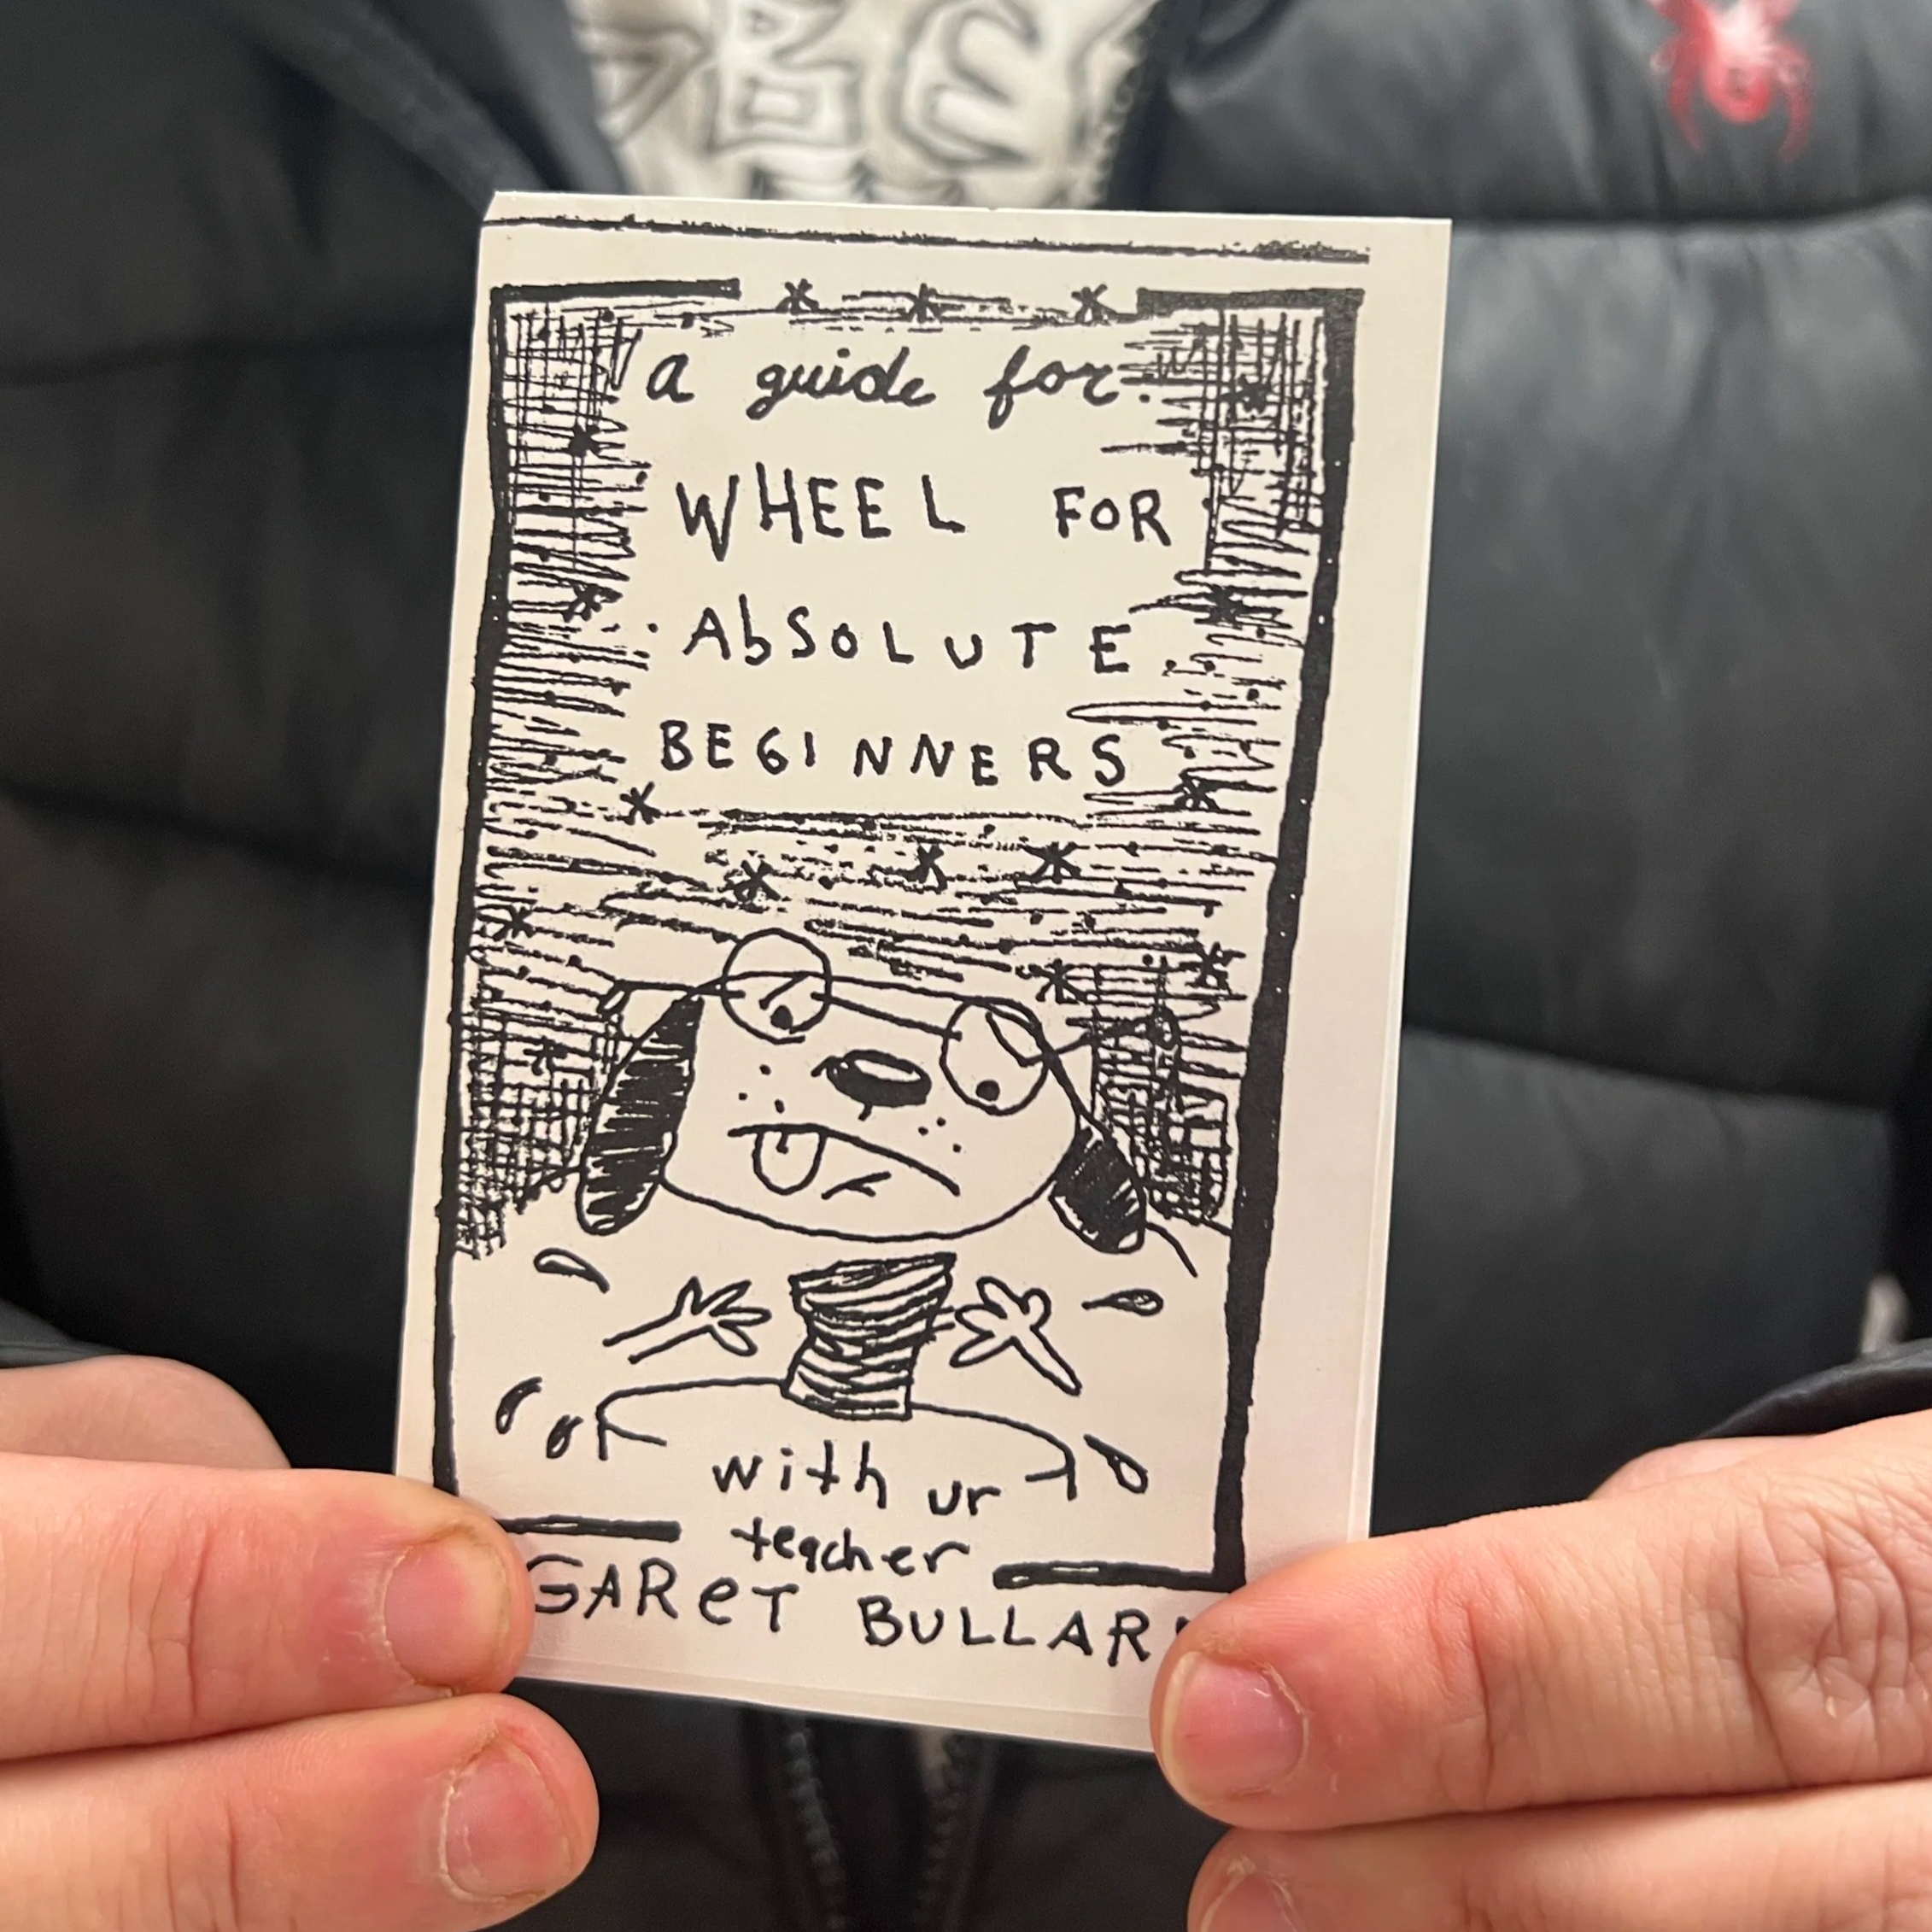 a guide for:
WHEEL FOR
AbSOLUTE
BEGINNERS
with ur
teacher
GAReT BULLAR